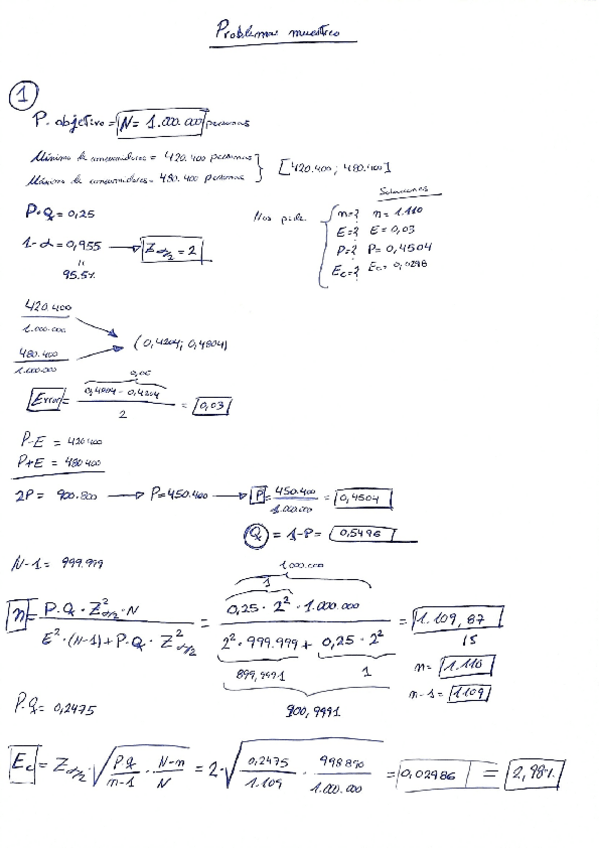 Problemas muestreo
1
P. objetivo = N = 1.000.000 personas
Mínimo de consumidores = 420.400 personas
Máximo de consumidores = 480.400 personas
[420.400 ; 480.400]
P·Q = 0,25
1-α = 0,955 → Z α/2 = 2
95.5%
Nos pide
Soluciones
n=? n = 1.110
E=? E = 0,03
P=? P = 0,4504
Ec=? Ec = 0,0298
420.400 / 1.000.000
480.400 / 1.000.000
(0,4204; 0,4804)
0,06
Error = 0,4804 - 0,4204 / 2 = 0,03
P-E = 420.400
P+E = 480.400
2P = 900.800 → P = 450.400 → P = 450.400 / 1.000.000 = 0,4504
Q = 1-P = 0,5496
N-1 = 999.999
1.000.000
1
n = P·Q·Z²α/2·N / E²·(N-1)+P·Q·Z²α/2 = 0,25·2²·1.000.000 / 2²·999.999 + 0,25·2² = 1.109,87
899,9991 1
900,9991
n = 1.110
n-1 = 1.109
P·Q = 0,2475
Ec = Z α/2·√ PQ / n-1 · N-n / N = 2·√ 0,2475 / 1.109 · 998890 / 1.000.000 = 0,02986 = 2,98%